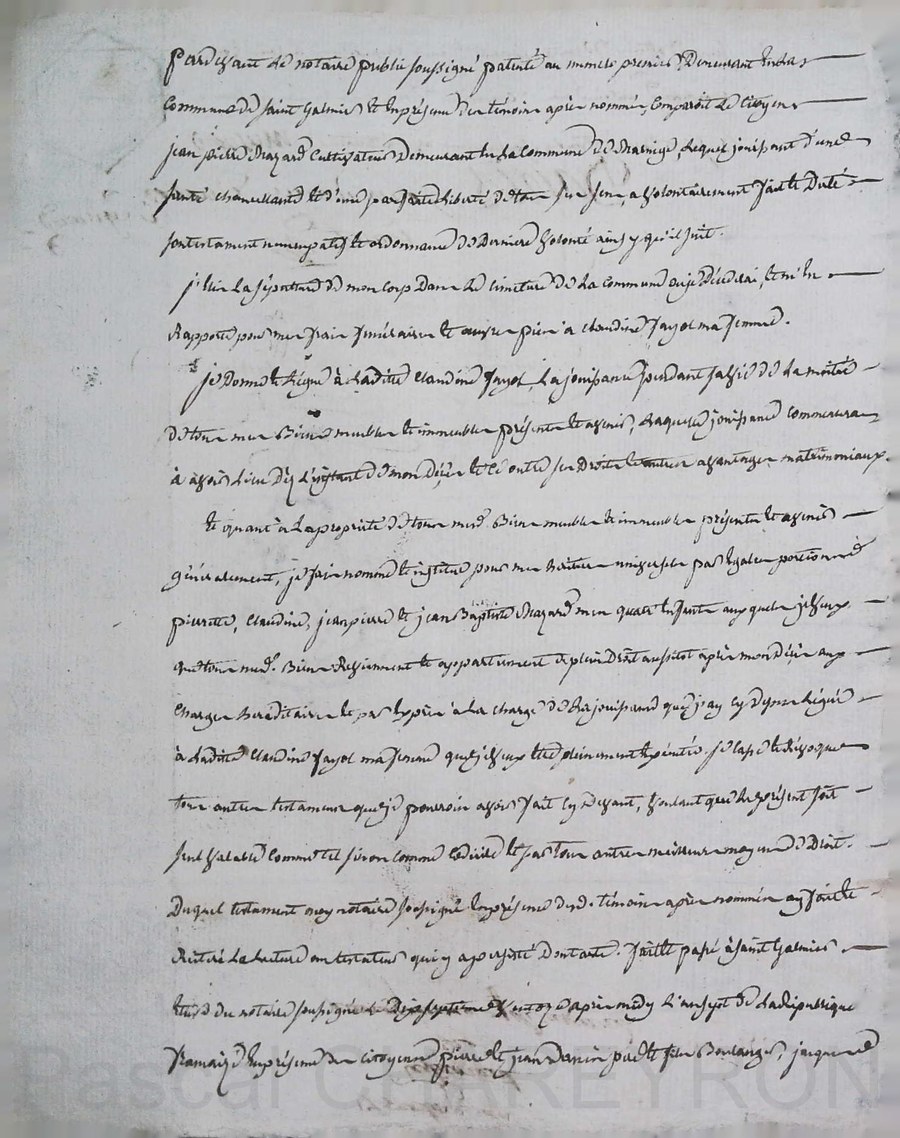 Pardevant le notaire public soussigné patenté au numero premier, Demeurant en la
Commune de Saint Galmier et En présence des témoins après nommés, Comparoit Le Citoyen
jean pierre Mazard Cultivateur Demeurant En La Commune de, Lequel jouissant d'une
santé chancellante et d'une parfaite Liberté de tous ses sens, a Volontairement fait et Dicté
son testament nuncupatif et ordonnance de Derniere Volonté ainsy qu'il suit.
j'Elis La sépulture de mon Corps Dans Le cimetiere de La commune ou je Décederai, et m'En
Rapporte pour mes frais funéraires et œuvres pies à claudine Fayol ma femme.
je Donne et Légue à Ladite Claudine Fayol, La jouissance pendant sa vie de La moitié
de tous mes Biens meubles et immeubles présents et avenir, Laquelle jouissance commencera
à avoir Lieu Dès L'instant de mon Décès et ce outre ses Droits et autres avantages matrimoniaux.
Et quant à La propriété de tous mesd. Biens meubles et immeubles présents et avenir
généralement, je fais nomme et institue pour mes héritiers universels par Egales portions
pierrette, Claudine, jean pierre et jean Baptiste Mazard mes quatre Enfants auxquels je Veux
que tous mesd. Biens Reviennent et appartiennent de plein Droit aussitot après mon Décès aux
Charges héréditaires et par Exprès à La charge de La jouissance que j'ay cy Devant Léguée
à Ladite Claudine Fayol ma femme que je Veux Etre pleinement Exécutée. je Casse et Révoque
tous autres testaments que je pourrois avoir fait Cy Devant, Voulant que Le présent soit
seul Valable Comme tel sinon comme Codicile et par tous autres meilleurs moyens de Droit.
Duquel testament moy notaire soussigné En présence desd. témoins après nommés ay fait et
Réitéré La Lecture au testateur qui y a persisté Dont acte. Fait et passé à Saint Galmier
Etude du notaire soussigné Le Dixseptieme après midy L'an sept de La République
française En présence des citoyens pierre et jean pere et fils Boulanger, jacques
Pascal CHIRREYRON